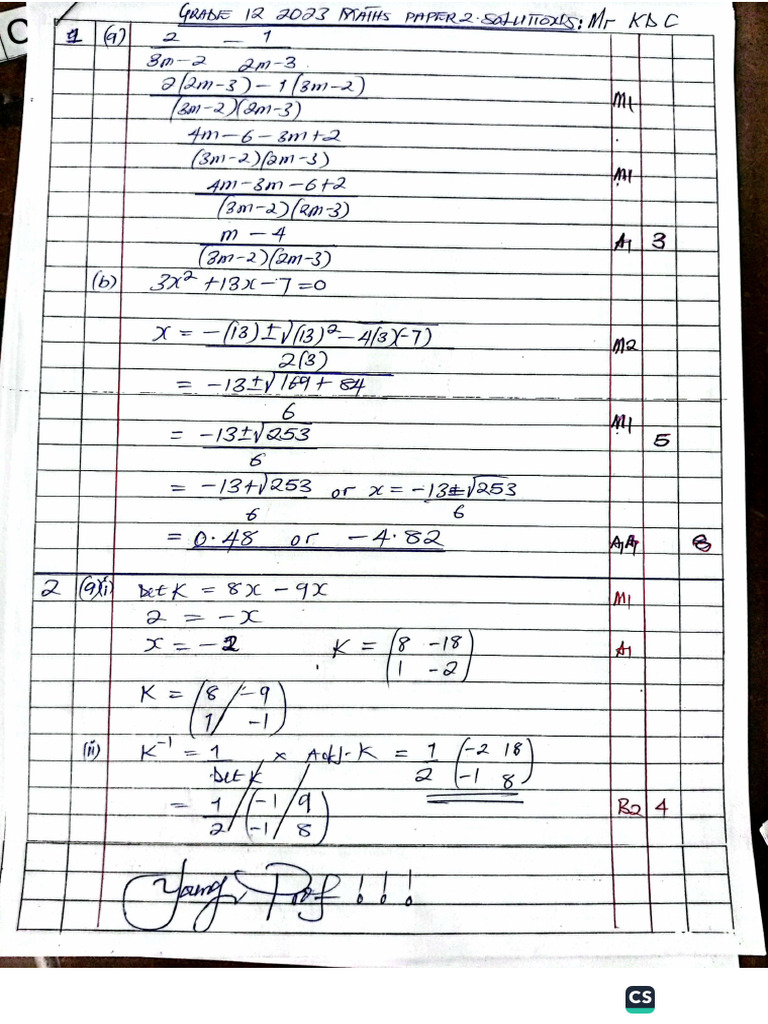 GRADE 12 2023 MATHS PAPER 2 SOLUTIONS: Mr KDC
1 (a) 2 — 1
3m-2 2m-3
2(2m-3) - 1(3m-2)
(3m-2)(2m-3) M1
4m-6-3m+2
(3m-2)(2m-3)
4m-3m-6+2 M1
(3m-2)(2m-3)
m-4 A1 3
(3m-2)(2m-3)
(b) 3x² + 13x - 7 = 0
x = -(13) ± √(13)² - 4(3)(-7) M2
2(3)
= -13 ± √169 + 84
6 M1
= -13 ± √253 5
6
= -13 + √253 or x = -13 ± √253
6 6
= 0.48 or -4.82 A1 A1 8
2 (a)(i) Det K = 8x - 9x M1
2 = -x
x = -2 K = (8 -18 A1
1 -2)
K = (8 -9
1 -1)
(ii) K⁻¹ = 1 x Adj-K = 1 (-2 18
Det K 2 -1 8)
= 1 (-1 9 B2 4
2 -1 8)
Young Prof !!!
CS